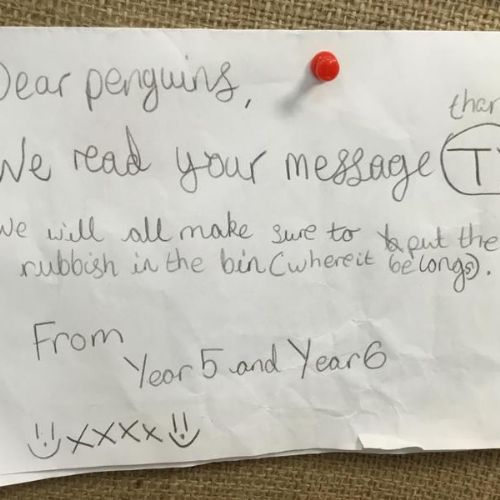 Dear penguins,
We read your message
We will all make sure to put the
rubbish in the bin (where it belongs).
From
Year 5 and Year 6
xxxx